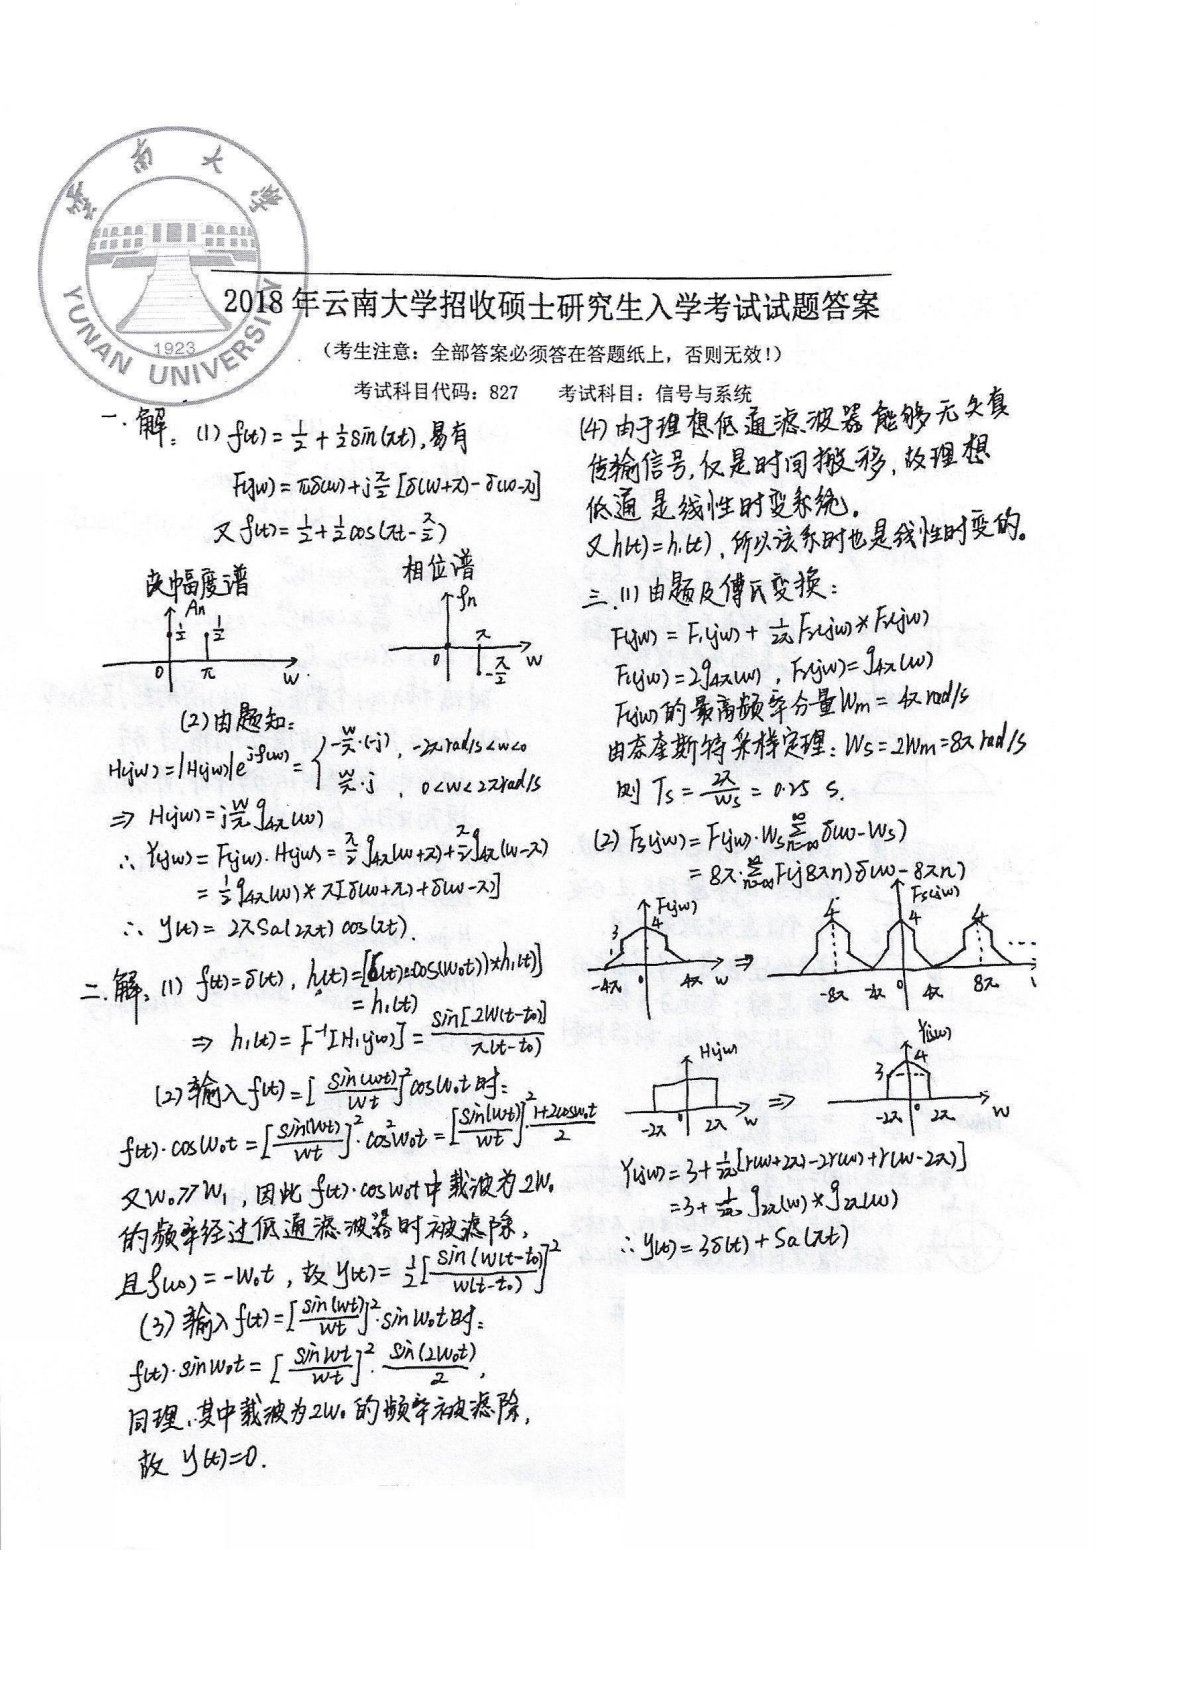 云南大学
YUNNAN UNIVERSITY
1923
2018 年云南大学招收硕士研究生入学考试试题答案
（考生注意：全部答案必须答在答题纸上，否则无效！）
考试科目代码：827 考试科目：信号与系统
一.解：(1) f(t)=1/2+1/2 sin(πt),易有
F(jw)=πδ(w)+jπ/2[δ(w+π)-δ(w-π)]
又 f(t)=1/2+1/2cos(πt-π/2)
幅度谱 相位谱
An 1/2 1/2 0 π w
φn π 0 -π/2 w
(2)由题知：
H(jw)=|H(jw)|e^{jφ(w)}={ -w/π·(-j), -2πrad/s<w<0
w/π·j, 0<w<2πrad/s
⇒ H(jw)=j w/π g4π(w)
∴ Y(jw)=F(jw)·H(jw)=π/2 g4π(w+π)+π/2 g4π(w-π)
=1/2 g4π(w)*π[δ(w+π)+δ(w-π)]
∴ y(t)=2πSa(2πt)cos(πt).
二.解：(1) f(t)=δ(t), h(t)=[δ(t)·cos(w0t)]*h1(t)
=h1(t)
⇒ h1(t)=F^-1[H1(jw)]=sin[2W(t-t0)]/π(t-t0)
(2)输入f(t)=[sin(wt)/wt]^2cosW0t时：
f(t)·cosW0t=[sin(wt)/wt]^2·cos^2w0t=[sin(wt)/wt]^2·1+2cosw0t/2
又W0≫W1，因此f(t)·cosw0t中载波为2W0
的频率经过低通滤波器时被滤除，
且φ(w)=-W0t，故y(t)=1/2[sin(w(t-t0))/w(t-t0)]^2
(3)输入f(t)=[sin(wt)/wt]^2·sinW0t时：
f(t)·sinw0t=[sinwt/wt]^2·sin(2w0t)/2,
同理，其中载波为2W0的频率被滤除，
故 y(t)=0.
(4)由于理想低通滤波器能够无失真
传输信号，仅是时间搬移，故理想
低通是线性时变系统。
又h(t)=h1(t)，所以该系时也是线性时变的。
三.(1)由题及傅氏变换：
F(jw)=F1(jw)+1/2π F2(jw)*F2(jw)
F1(jw)=2g4π(w), F2(jw)=g4π(w)
F(jw)的最高频率分量Wm=4πrad/s
由奈奎斯特采样定理：Ws=2Wm=8πrad/s
则 Ts=2π/Ws=0.25 s.
(2) Fs(jw)=F(jw)·Ws∑_{n=-∞}^{∞}δ(w-Ws)
=8π·∑_{n=-∞}^{∞}F(j8πn)δ(w-8πn)
F(jw) 4 3 -4π 0 4π w ⇒ Fs(jw) 4 4 4 -8π -4π 0 4π 8π
H(jw) -2π 0 2π w ⇒ Y(jw) 4 3 -2π 0 2π w
Y(jw)=3+1/2π[r(w+2π)-2r(w)+r(w-2π)]
=3+1/2π g2π(w)*g2π(w)
∴ y(t)=3δ(t)+Sa(πt)